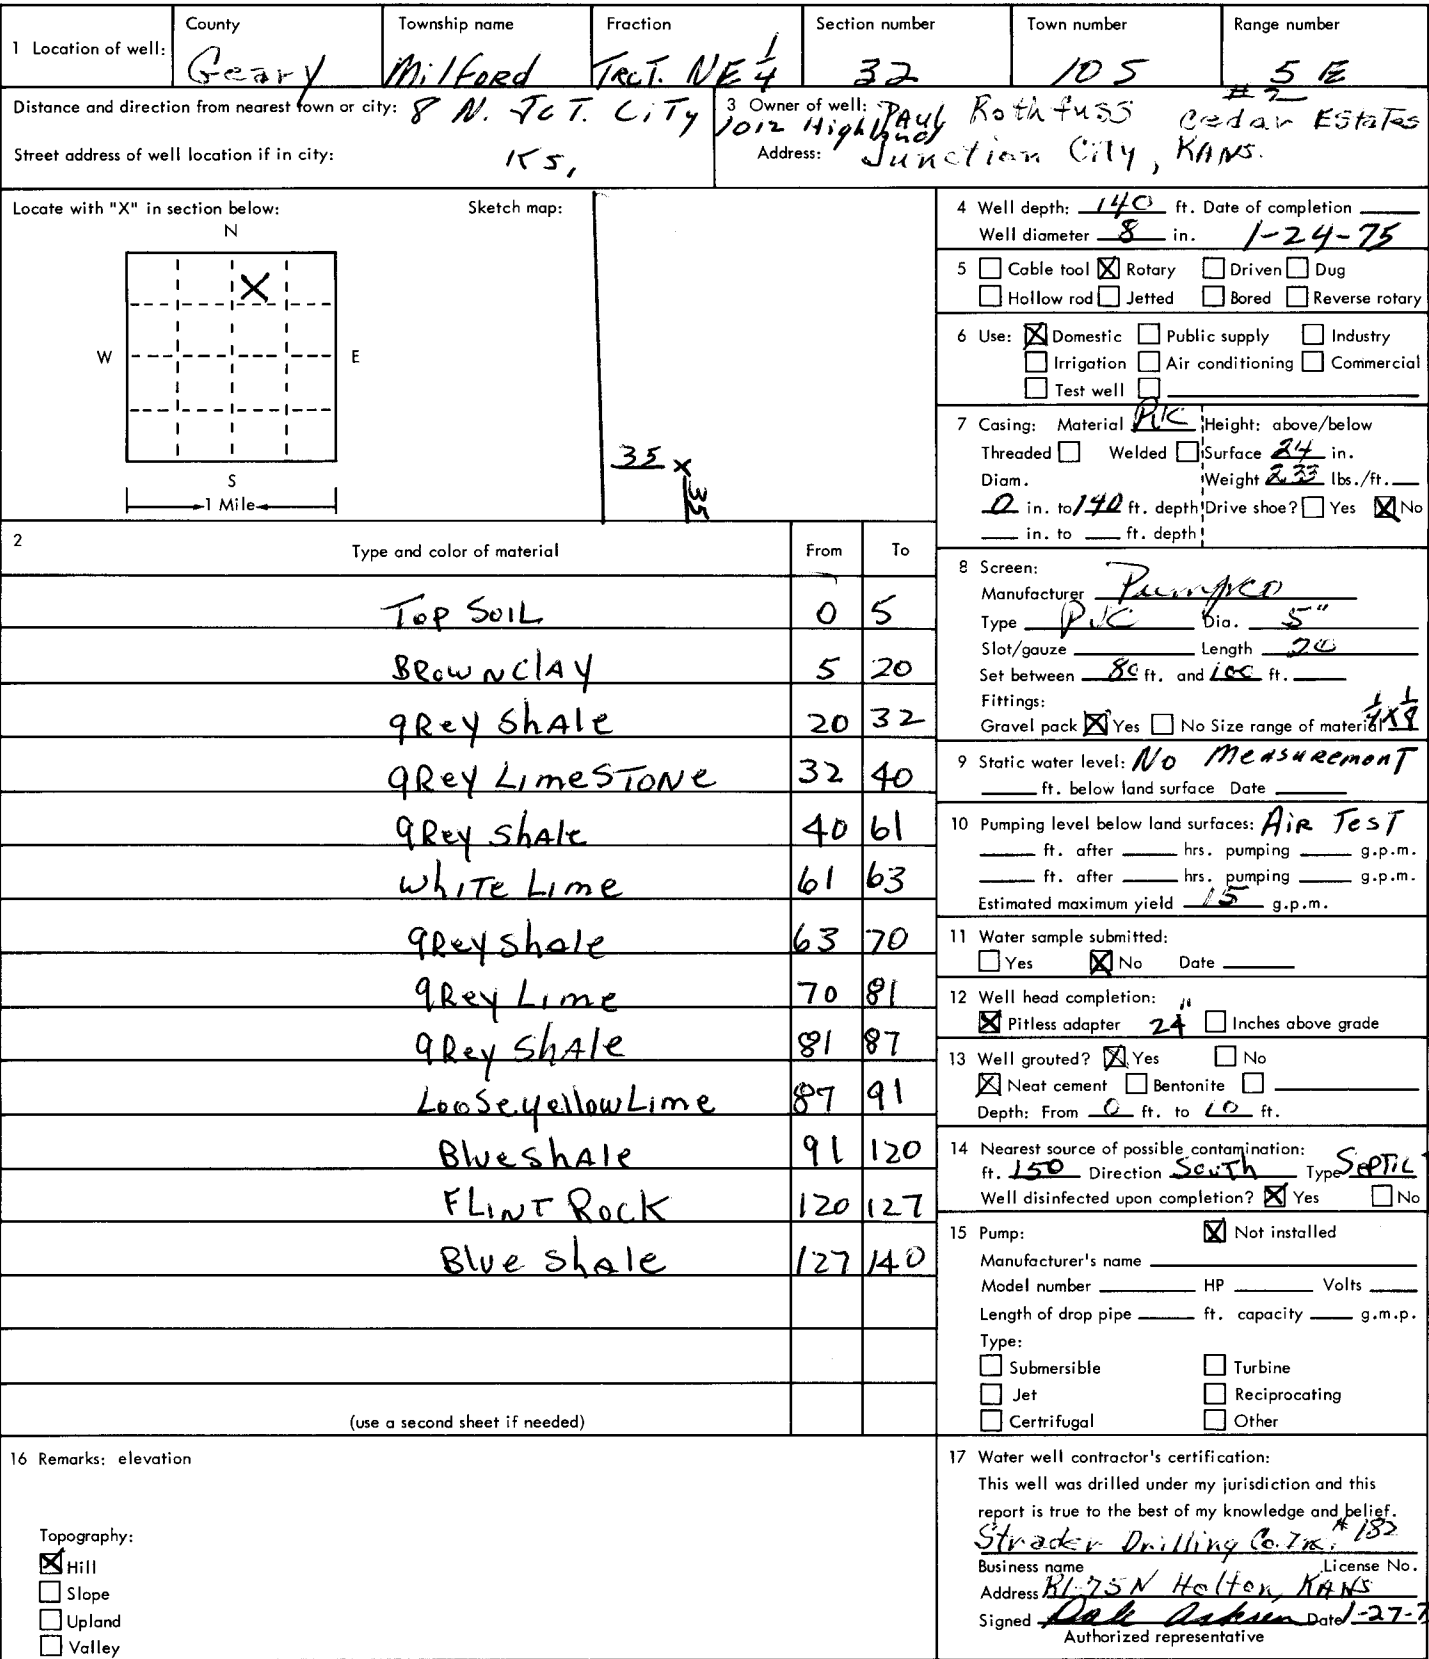 1 Location of well: County Township name Fraction Section number Town number Range number
Geary Milford Trct. NE 1/4 32 10 S 5 E
Distance and direction from nearest town or city: 8 N. Jct. City
Street address of well location if in city: Ks,
3 Owner of well: Paul Rothfuss #2 Cedar Estates
1012 Highland
Address: Junction City, Kans.
Locate with "X" in section below: Sketch map:
N
X
W E
S
1 Mile
35 x
35
4 Well depth: 140 ft. Date of completion
Well diameter 8 in. 1-24-75
5 Cable tool X Rotary Driven Dug
Hollow rod Jetted Bored Reverse rotary
6 Use: X Domestic Public supply Industry
Irrigation Air conditioning Commercial
Test well
7 Casing: Material PVC Height: above/below
Threaded Welded Surface 24 in.
Diam. Weight 2.33 lbs./ft.
0 in. to 140 ft. depth Drive shoe? Yes X No
in. to ft. depth
2 Type and color of material From To
Top Soil 0 5
Brown Clay 5 20
gRey ShAle 20 32
gRey LimeSTONe 32 40
gRey ShAle 40 61
White Lime 61 63
gRey Shale 63 70
gRey Lime 70 81
gRey ShAle 81 87
Loose yellow Lime 87 91
Blue ShAle 91 120
FLINT ROCK 120 127
Blue ShAle 127 140
(use a second sheet if needed)
8 Screen:
Manufacturer Pumpco
Type PVC Dia. 5"
Slot/gauze Length 20
Set between 80 ft. and 100 ft.
Fittings:
Gravel pack X Yes No Size range of material 1/4 x 1/8
9 Static water level: No Measurement
ft. below land surface Date
10 Pumping level below land surfaces: Air Test
ft. after hrs. pumping g.p.m.
ft. after hrs. pumping g.p.m.
Estimated maximum yield 15 g.p.m.
11 Water sample submitted:
Yes X No Date
12 Well head completion:
X Pitless adapter 24" Inches above grade
13 Well grouted? X Yes No
X Neat cement Bentonite
Depth: From 0 ft. to 10 ft.
14 Nearest source of possible contamination:
ft. 150 Direction South Type Septic
Well disinfected upon completion? X Yes No
15 Pump: X Not installed
Manufacturer's name
Model number HP Volts
Length of drop pipe ft. capacity g.m.p.
Type:
Submersible Turbine
Jet Reciprocating
Certrifugal Other
16 Remarks: elevation
Topography:
X Hill
Slope
Upland
Valley
17 Water well contractor's certification:
This well was drilled under my jurisdiction and this
report is true to the best of my knowledge and belief.
Strader Drilling Co. Inc. #182
Business name License No.
Address R1-75N Holton, KANS
Signed Dale Date 1-27-7
Authorized representative